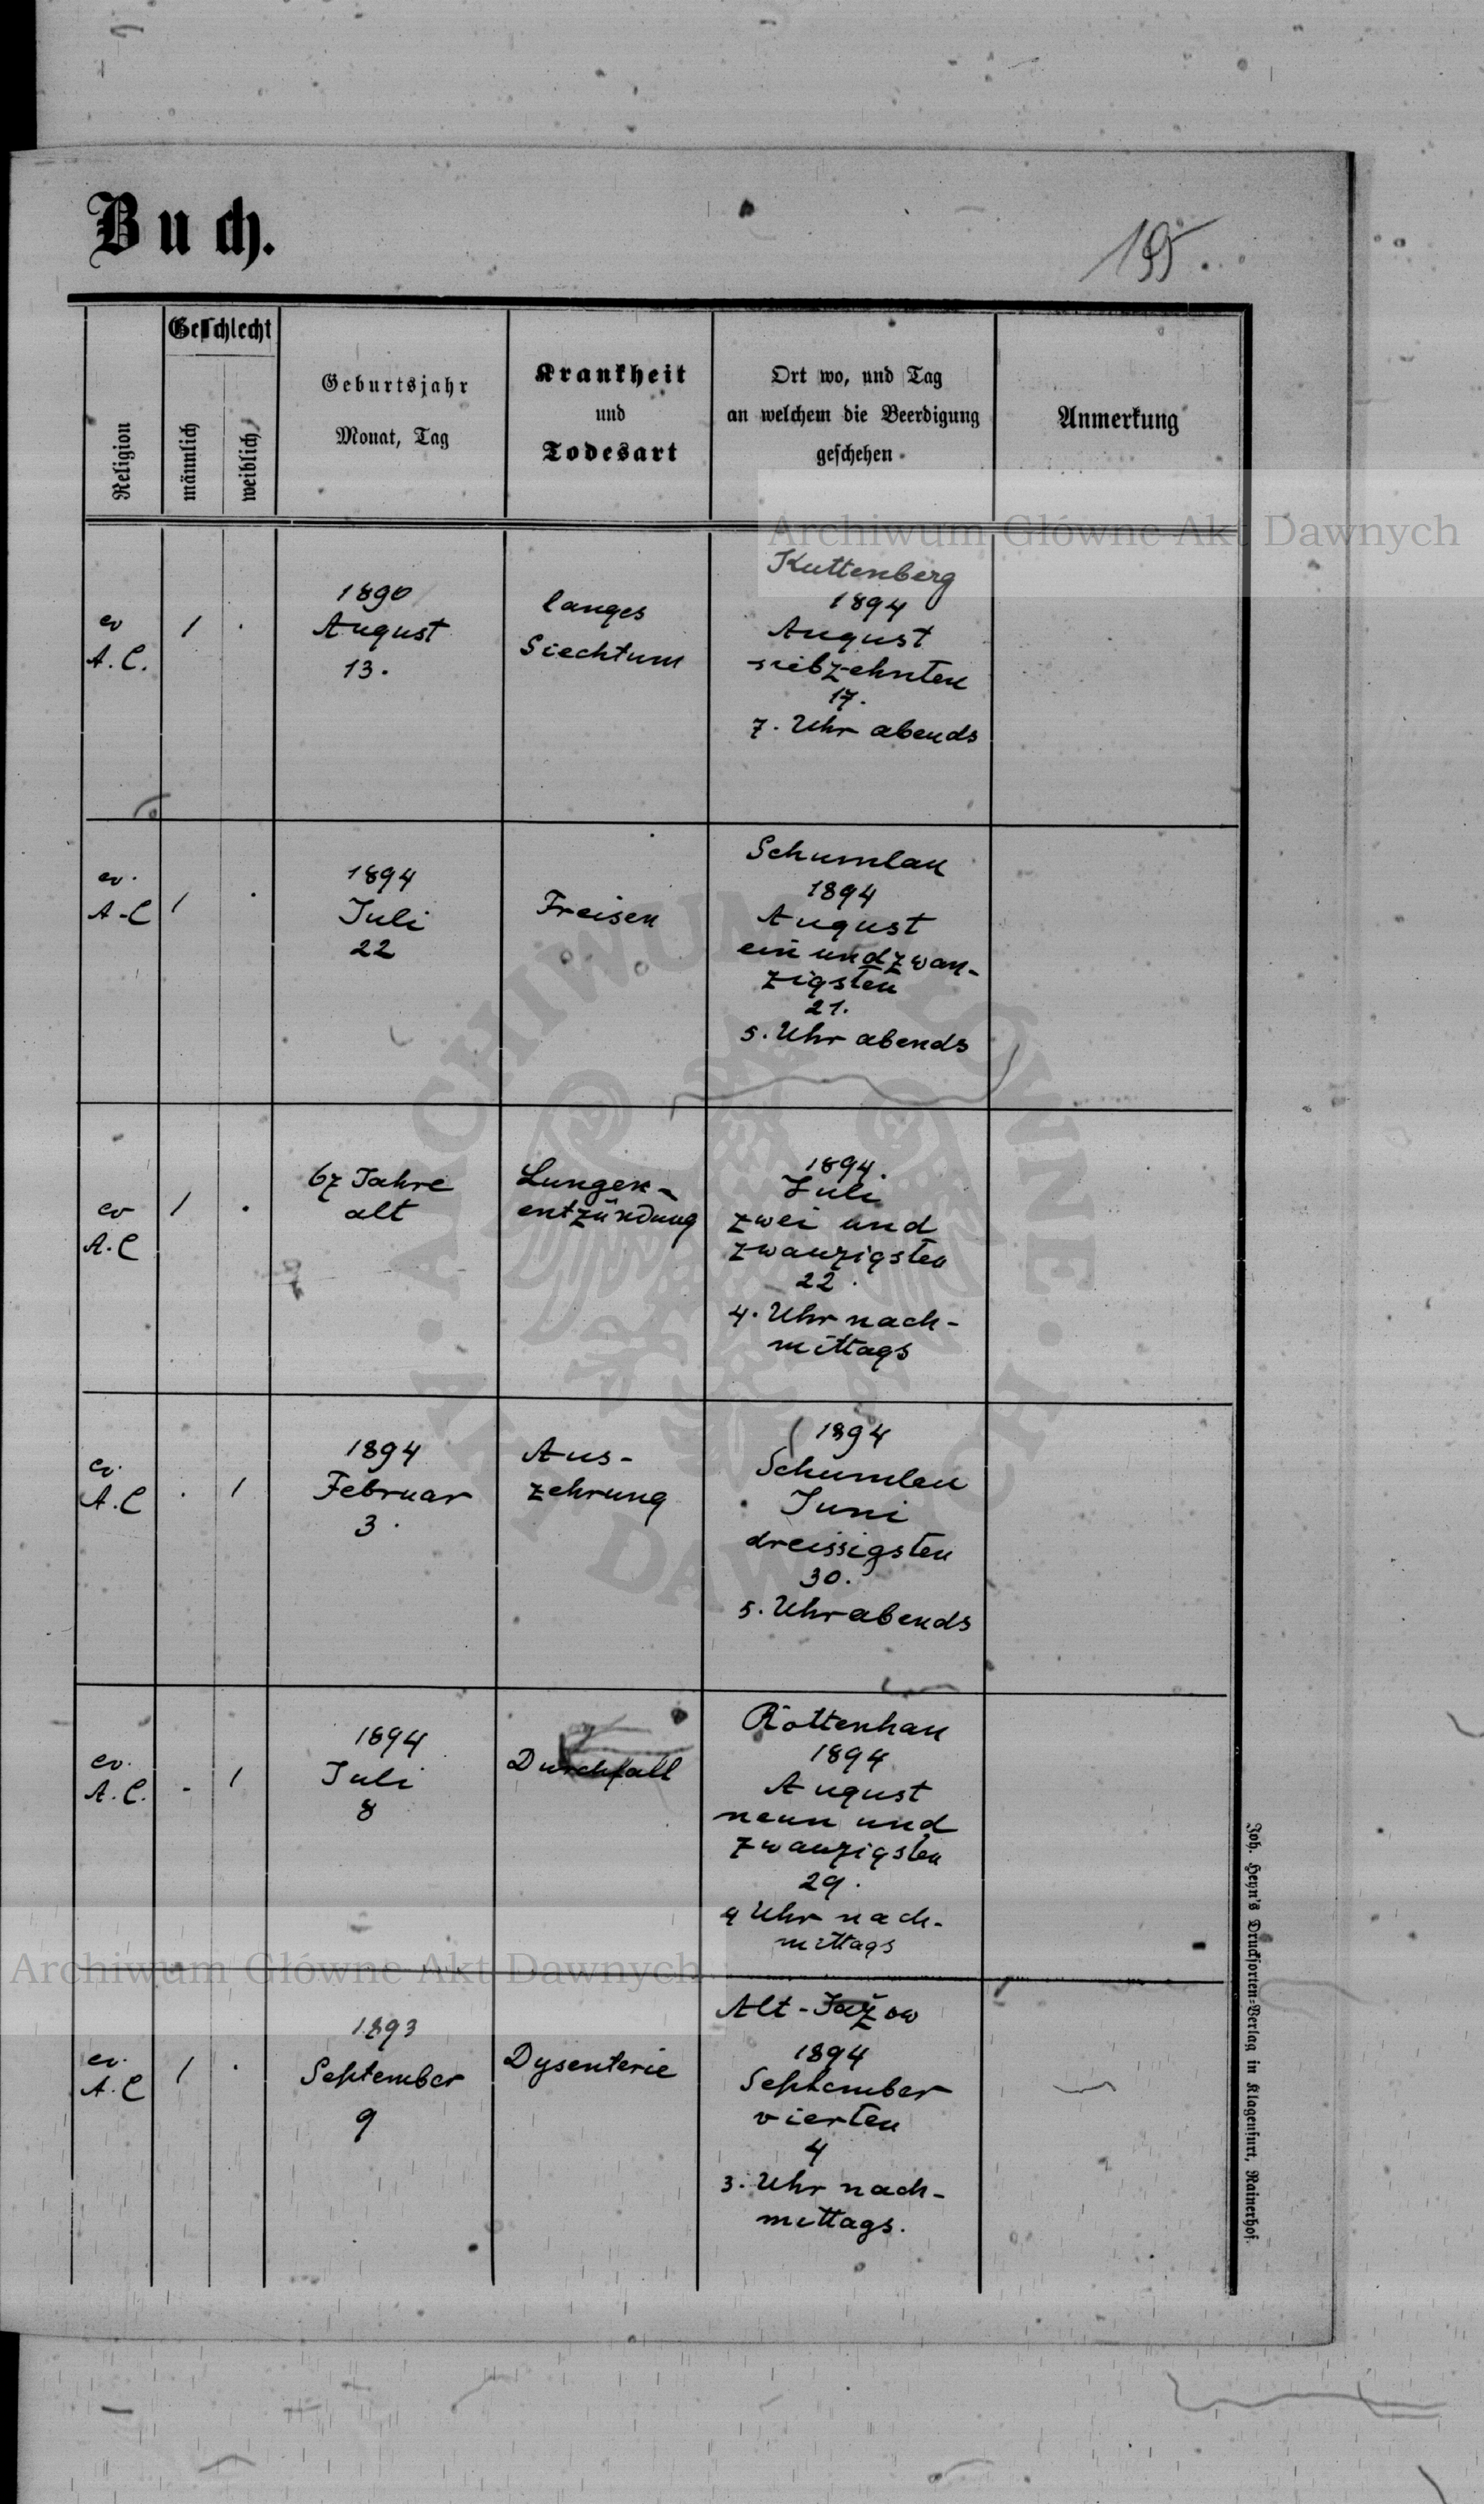 Buch.
195.
Religion
Geschlecht
männlich
weiblich
Geburtsjahr
Monat, Tag
Krankheit
und
Todesart
Ort wo, und Tag
an welchem die Beerdigung
geschehen
Anmerkung
Archiwum Główne Akt Dawnych
ev
A. C.
1
.
1890
August
13.
langes
Siechtum
Kuttenberg
1894
August
siebzehnten
17.
7. Uhr abends
ev.
A-C
1
.
1894
Juli
22
Freisen
Schumlau
1894
August
ein undzwan-
zigsten
21.
5. Uhr abends
ev
A.C
1
.
67 Jahre
alt
Lungen-
entzündung
1894.
Juli
zwei und
zwanzigsten
22.
4. Uhr nach-
mittags
ev.
A.C
.
1
1894
Februar
3.
Aus-
zehrung
1894
Schumlau
Juni
dreissigsten
30.
5. Uhr abends
ev.
A.C.
-
1
1894
Juli
8
Durchfall
Rottenhan
1894
August
neun und
zwanzigsten
29.
4 Uhr nach-
mittags
Archiwum Główne Akt Dawnych
ev.
A.C
1
.
1893
September
9
Dysenterie
Alt-Jażow
1894
September
vierten
4
3. Uhr nach-
mittags.
Joh. Heyn's Drucksorten-Verlag in Klagenfurt, Rainerhof.
ARCHIWUM GŁÓWNE · AKT DAWNYCH ·